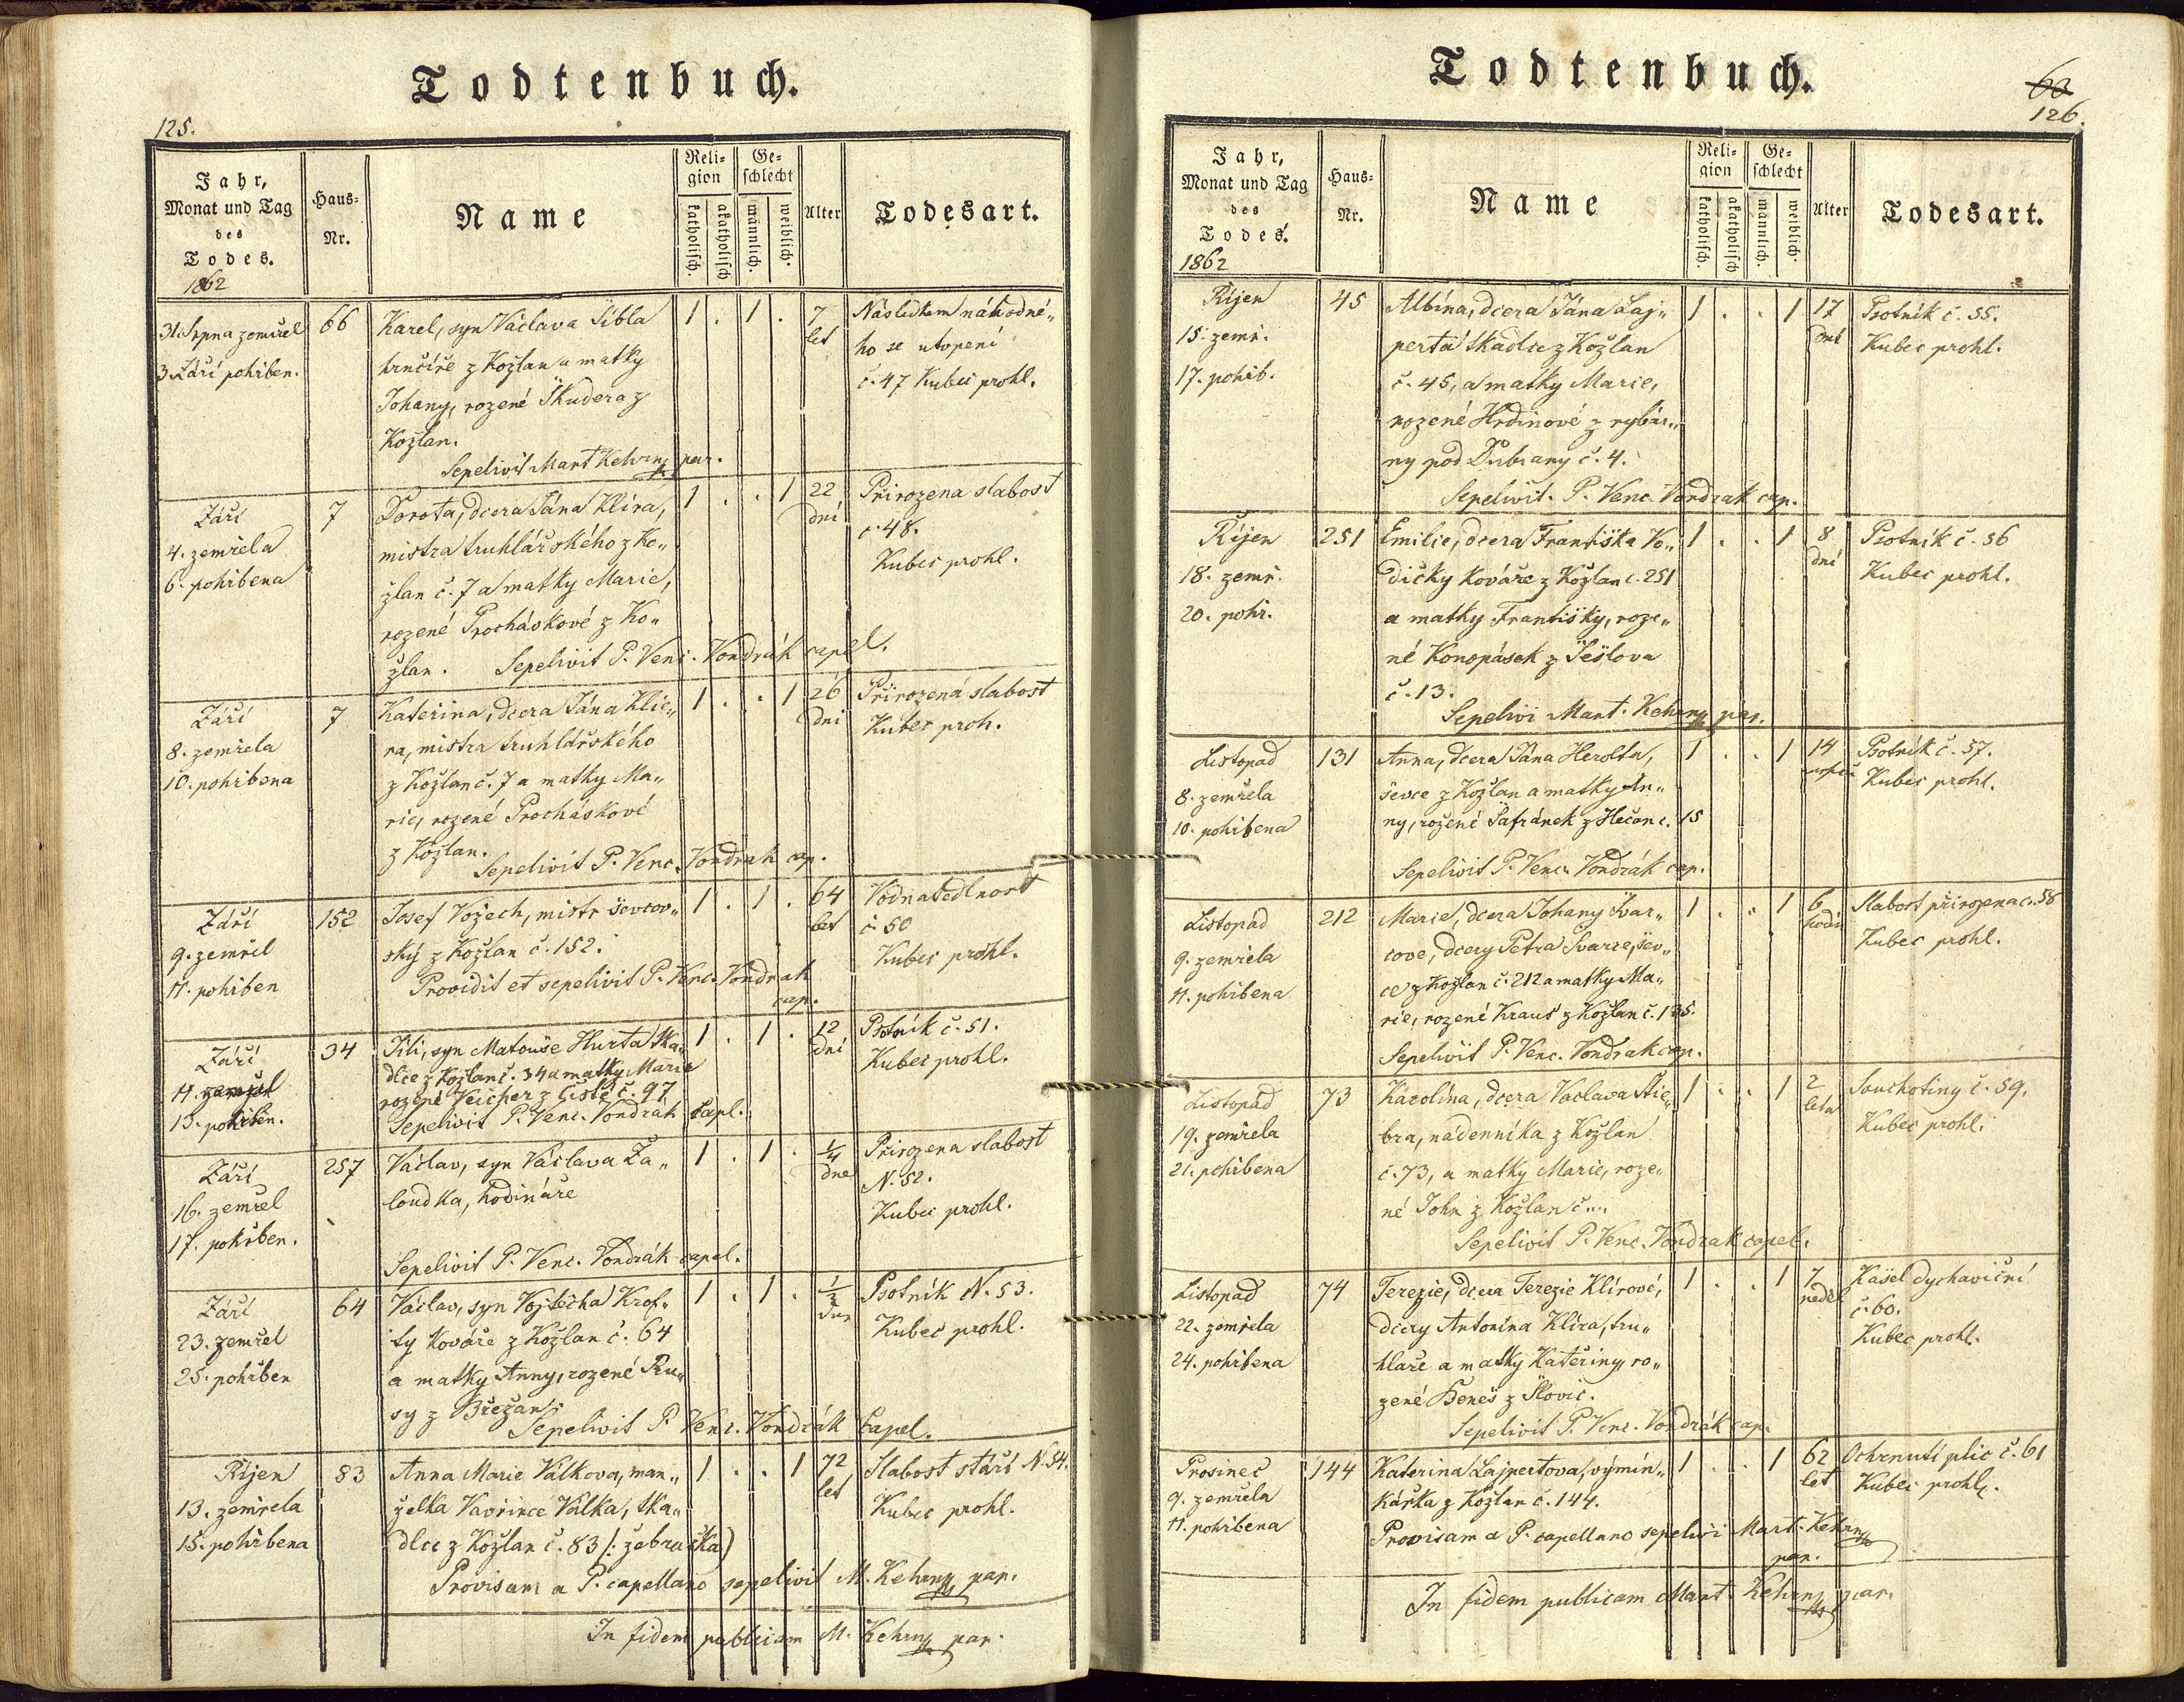 Todtenbuch.
125.
Jahr,
Monat und Tag
des
Todes.
1862
Haus-
Nr.
Name
Reli-
gion
katholisch.
akatholisch
Ge-
schlecht
männlich.
weiblich.
Alter
Todesart.
31. Srpna zemřel
3 Září pohřben.
66
Karel, syn Václava Šibla
hrnčíře z Kožlan a matky
Johany, rozené Škudera z
Kožlan.
Sepelivit Mart Kehrny par.
1 . 1 .
7
let
Následkem náhodné„
ho se utopení
č. 47 Kubec prohl.
Září
4. zemřela
6. pohřbena
7
Dorota, dcera Jána Klíra,
mistra truhlářského z Ko„
žlan č. 7 a matky Marie,
rozené Procháskové z Ko„
žlan. Sepelivit P. Venc. Vondrák capel.
1 . . 1
22
dní
Přirozena slabost
č. 48.
Kubec prohl.
Září
8. zemřela
10. pohřbena
7
Kateřina, dcera Jána Klie„
ra, mistra truhlářského
z Kožlan č. 7 a matky Ma„
rie, rozené Procháskové
z Kožlan.
Sepelivit P. Venc. Vondrak cap.
1 . . 1
26
dní
Přirozená slabost
Kubec proh.
Září
9. zemřel
11. pohřben
152
Josef Vojtech, mistr ševcov„
ský z Kožlan č. 152.
Providit et sepelivit P. Venc. Vondrak
cap.
1 . 1 .
64
let
Vodnatedlnost
č. 50
Kubec prohl.
Září
11. zemřel
13. pohřben.
34
Jiři, syn Matouše Hurta tka„
dlce z Kožlan č. 34 a matky Marie
rozené Veicher z Čisté č. 97
Sepelivit P. Venc. Vondrak Capl.
1 . 1 .
12
dní
Psotník č. 51.
Kubec prohl.
Září
16. zemřel
17. pohřben.
257
Václav, syn Václava Ža„
loudka, hodináře
Sepelivit P. Venc. Vondrák capel.
1 . 1 .
1/4
dne
Přirozena slabost
N. 52.
Kubec prohl.
Září
23. zemřel
25. pohřben
64
Václav, syn Vojtěcha Krof„
ty kováře z Kožlan č. 64
a matky Anny, rozené Ru„
sy z Břežan.
Sepelivit P Venc. Vondrák Capel.
1 . 1 .
1/2
dne
Psotník N. 53.
Kubec prohl.
Říjen
13. zemřela
15. pohřbena
83
Anna Marie Válkova, man„
želka Vavřince Válka, tka„
dlce z Kožlan č. 83 /: žebračka)
Provisam a P. capellano sepelivit M. Kehrny par.
1 . . 1
72
let
Slabost stáří N. 54.
Kubec prohl.
In fidem publicam M. Kehrny par.
Todtenbuch.
60
126.
Jahr,
Monat und Tag
des
Todes.
1862
Haus-
Nr.
Name
Reli-
gion
katholisch.
akatholisch
Ge-
schlecht
männlich.
weiblich.
Alter
Todesart.
Říjen
15. zemř.
17. pohřb.
45
Albína, dcera Jána Laj„
perta tkadlce z Kožlan
č. 45, a matky Marie,
rozené Hrdinové z rybár„
ny pod Dubiany č. 4.
Sepelivit. P. Venc. Vondrak cap.
1 . . 1
17
dní
Psotník č. 55.
Kubec prohl.
Říjen
18. zemř.
20. pohř.
251
Emilie, dcera Františka Vo„
dičky kováře z Kožlan č. 251
a matky Františky, roze„
né Konopásek z Šešlova
č. 13.
Sepelivi Mart. Kehrny par.
1 . . 1
8
dní
Psotník č. 56
Kubec prohl.
Listopad
8. zemřela
10. pohřbena
131
Anna, dcera Jána Herolta,
ševce z Kožlan a matky An„
ny, rozené Šafránek z Hlečan č. 15
Sepelivit P. Venc. Vondrák cap.
1 . . 1
14
Psotník č. 57.
Kubec prohl.
Listopad
9. zemřela
11. pohřbena
212
Marie, dcera Johany Švar„
cove, dcery Petra Švarce, šev„
ce z Kožlan č. 212 a matky Ma„
rie, rozené Kraus z Kožlan č. 135.
Sepelivit P. Venc. Vondrak cap.
1 . . 1
6
hodin
Slabost přirozena č. 58
Kubec prohl.
Listopad
19. zemřela
21. pohřbena
73
Karolína, dcera Vaclava Stie„
bra, nádenníka z Kožlan
č. 73, a matky Marie, roze„
né John z Kožlan č ...
Sepelivit P. Venc. Vondrak capel.
1 . . 1
2
leta
Souchotiny č. 59.
Kubec prohl.
Listopad
22. zemřela
24. pohřbena
74
Terezie, dcera Terezie Klírové,
dcery Antonína Klíra, tru„
hlaře a matky Kateřiny, ro„
zené Beneš z Slovic.
Sepelivit P. Venc. Vondrák cap.
1 . . 1
7
neděl
Kašel dychaviční
č. 60.
Kubec prohl.
Prosinec
9. zemřela
11. pohřbena
144
Katerina Lajpertova, vymin„
kářka z Kožlan č. 144.
Provisam a P. capellano sepelivi Mart. Kehrny
par.
1 . . 1
62
let
Ochrnutí plic č. 61
Kubec prohl.
In fidem publicam Mart. Kehrny par.